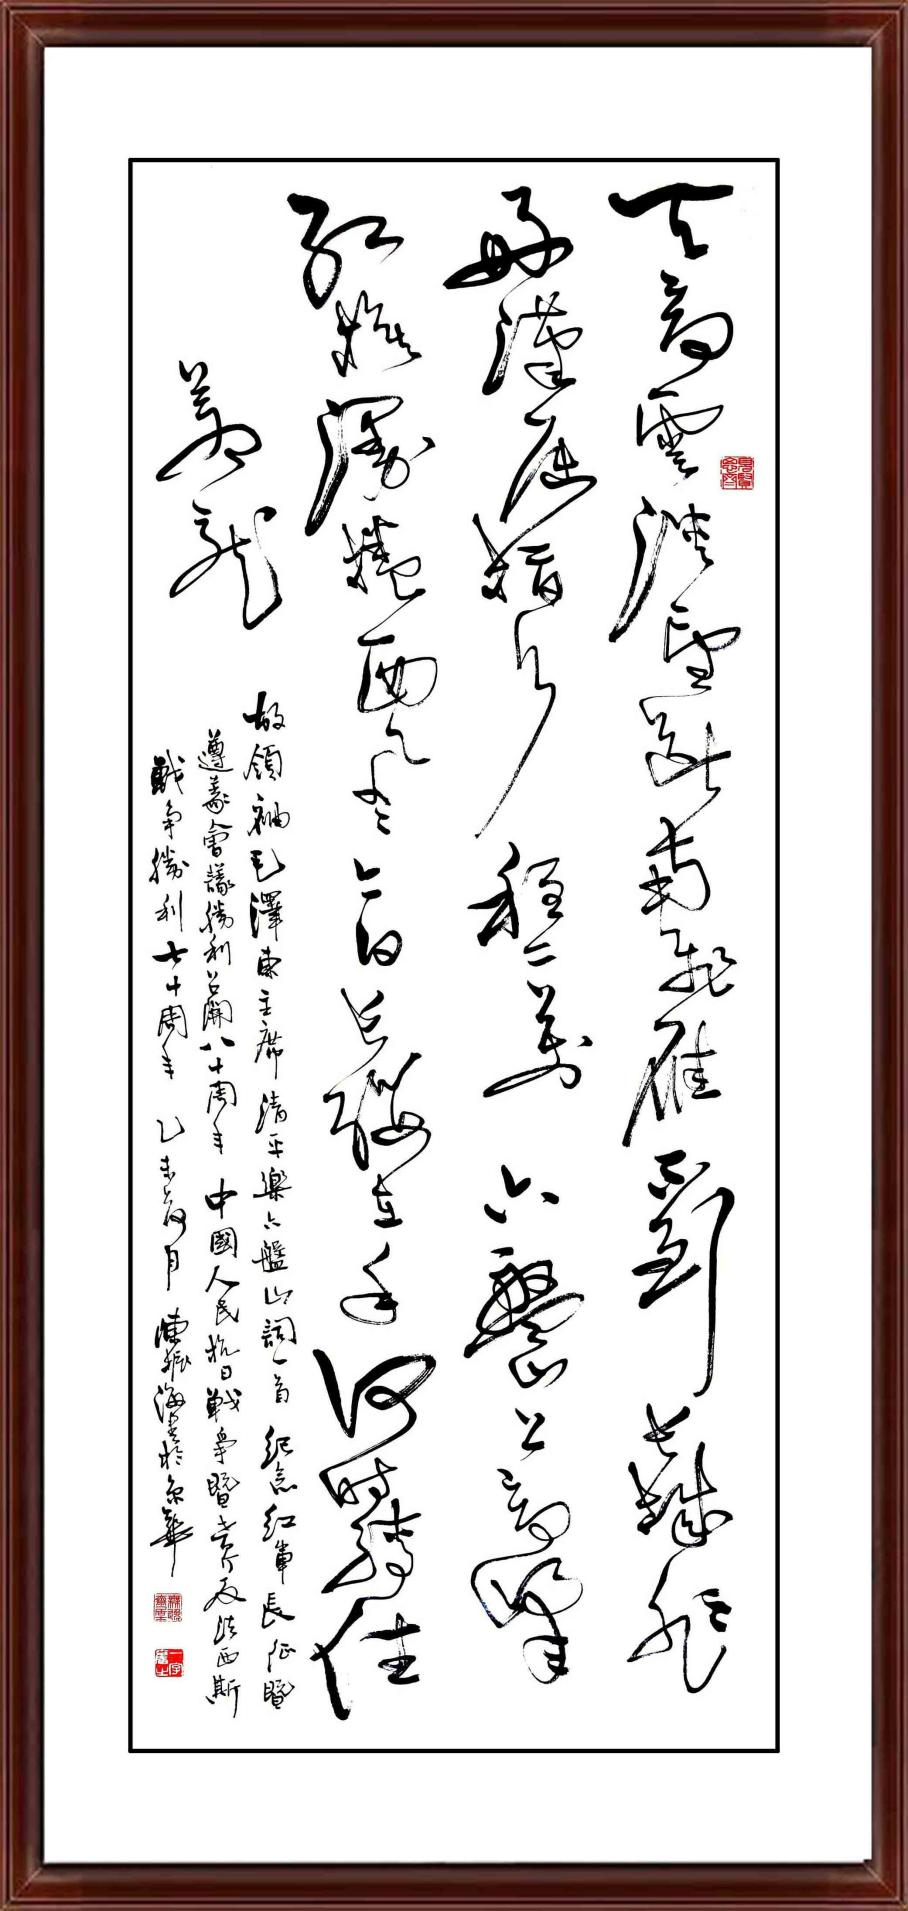 天高雲淡望斷南飛雁不到長城非
好漢屈指行程二萬六盤山上高峰
紅旗漫捲西風今日長纓在手何时縛住
蒼龍
故領袖毛澤東主席清平樂六盤山詞一首 紀念紅軍長征暨
遵義會議勝利召開八十周年 中國人民抗日戰爭暨世界反法西斯
戰争勝利七十周年 乙未荷月 陳振海書於京華